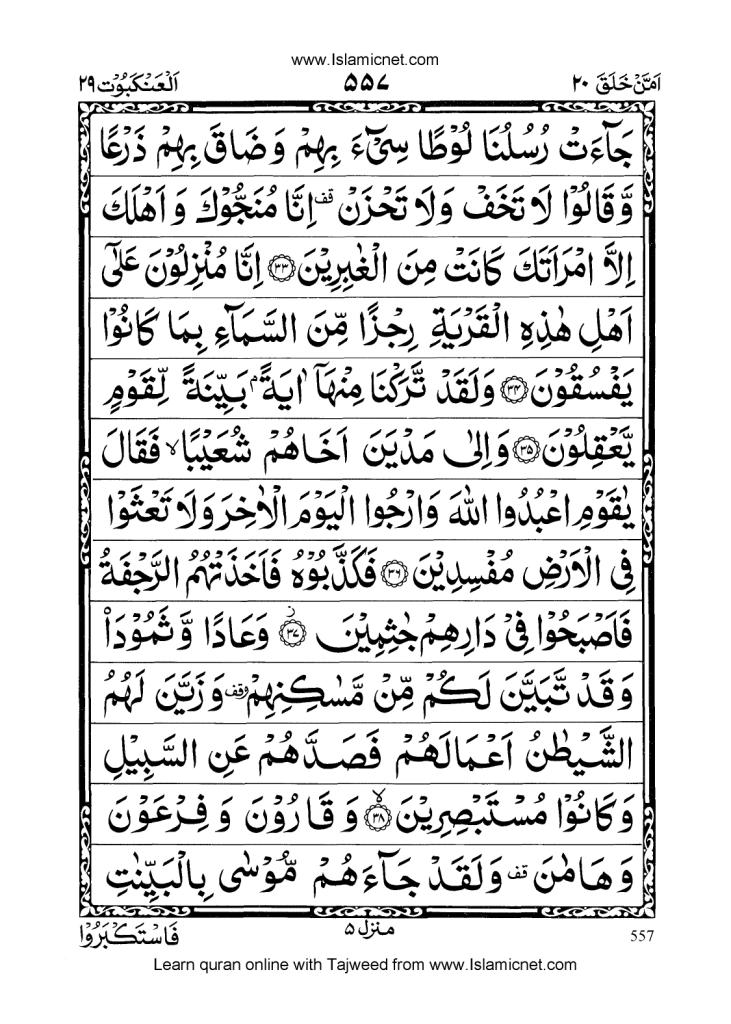 www.Islamicnet.com
اَمَّنْ خَلَقَ ٢٠ ۵۵۷ اَلْعَنْكَبُوْت ٢٩
جَآءَتْ رُسُلُنَا لُوْطًا سِیْٓءَ بِهِمْ وَضَاقَ بِهِمْ ذَرْعًا
وَّقَالُوْا لَا تَخَفْ وَلَا تَحْزَنْ ۫ اِنَّا مُنَجُّوْكَ وَاَهْلَكَ
اِلَّا امْرَاَتَكَ كَانَتْ مِنَ الْغٰبِرِیْنَ ﴿۳۳﴾ اِنَّا مُنْزِلُوْنَ عَلٰۤی
اَهْلِ هٰذِهِ الْقَرْیَةِ رِجْزًا مِّنَ السَّمَآءِ بِمَا كَانُوْا
یَفْسُقُوْنَ ﴿۳۴﴾ وَلَقَدْ تَّرَكْنَا مِنْهَاۤ اٰیَةًۢ بَیِّنَةً لِّقَوْمٍ
یَّعْقِلُوْنَ ﴿۳۵﴾ وَاِلٰی مَدْیَنَ اَخَاهُمْ شُعَیْبًا ۙ فَقَالَ
یٰقَوْمِ اعْبُدُوا اللهَ وَارْجُوا الْیَوْمَ الْاٰخِرَ وَلَا تَعْثَوْا
فِی الْاَرْضِ مُفْسِدِیْنَ ﴿۳۶﴾ فَكَذَّبُوْهُ فَاَخَذَتْهُمُ الرَّجْفَةُ
فَاَصْبَحُوْا فِیْ دَارِهِمْ جٰثِمِیْنَ ﴿۳۷﴾ ؗ وَعَادًا وَّثَمُوْدَاۡ
وَقَدْ تَّبَیَّنَ لَكُمْ مِّنْ مَّسٰكِنِهِمْ وقف وَزَیَّنَ لَهُمُ
الشَّیْطٰنُ اَعْمَالَهُمْ فَصَدَّهُمْ عَنِ السَّبِیْلِ
وَكَانُوْا مُسْتَبْصِرِیْنَ ﴿۳۸﴾ ۙ وَقَارُوْنَ وَفِرْعَوْنَ
وَهَامٰنَ قف وَلَقَدْ جَآءَهُمْ مُّوْسٰی بِالْبَیِّنٰتِ
منزل ۵
فَاسْتَكْبَرُوْا
557
Learn quran online with Tajweed from www.Islamicnet.com